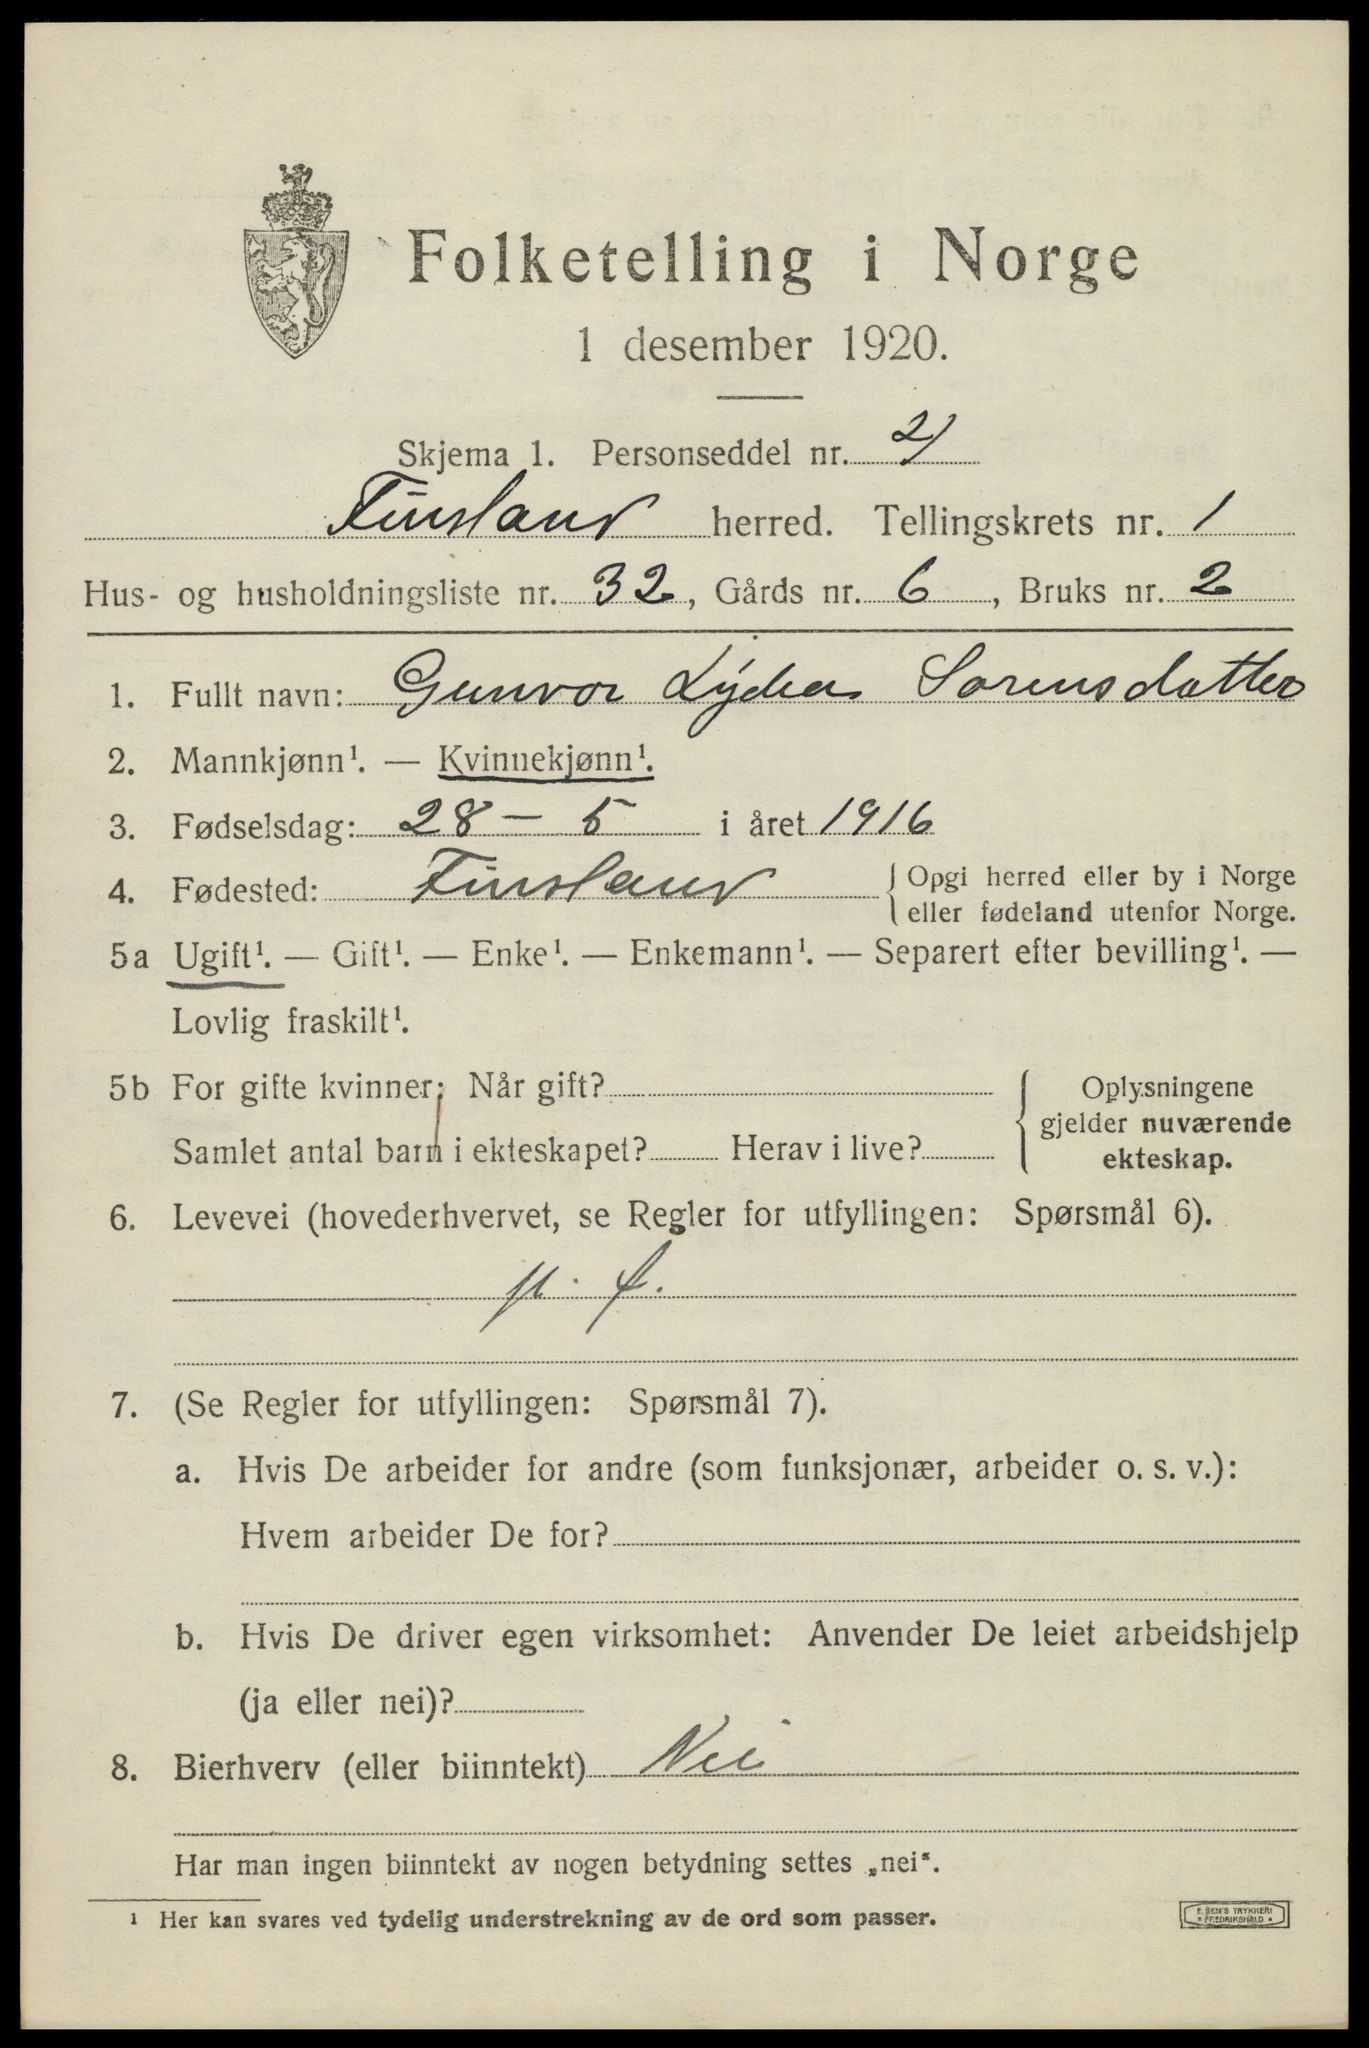 Folketelling i Norge
1 desember 1920.
Skjema 1. Personseddel nr. 2/
Finsland herred. Tellingskrets nr. 1
Hus- og husholdningsliste nr. 32, Gårds nr. 6, Bruks nr. 2
1. Fullt navn: Gunvor Lydia Sørensdatter
2. Mannkjønn¹. — Kvinnekjønn¹.
3. Fødselsdag: 28 – 5 i året 1916
4. Fødested: Finsland { Opgi herred eller by i Norge
eller fødeland utenfor Norge.
5a Ugift¹. — Gift¹. — Enke¹. — Enkemann¹. — Separert efter bevilling¹. —
Lovlig fraskilt¹.
5b For gifte kvinner: Når gift? { Oplysningene
gjelder nuværende
Samlet antal barn i ekteskapet? Herav i live? ekteskap.
6. Levevei (hovederhvervet, se Regler for utfyllingen: Spørsmål 6).
7. (Se Regler for utfyllingen: Spørsmål 7).
a. Hvis De arbeider for andre (som funksjonær, arbeider o. s. v.):
Hvem arbeider De for?
b. Hvis De driver egen virksomhet: Anvender De leiet arbeidshjelp
(ja eller nei)?
8. Bierhverv (eller biinntekt) Nei
Har man ingen biinntekt av nogen betydning settes „nei“.
¹ Her kan svares ved tydelig understrekning av de ord som passer.
E. SEM'S TRYKKERI
* FREDRIKSHALD *